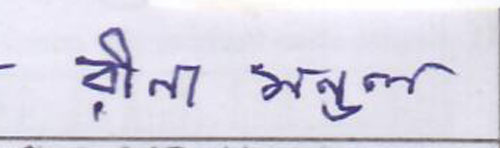 রীনা মন্ডল